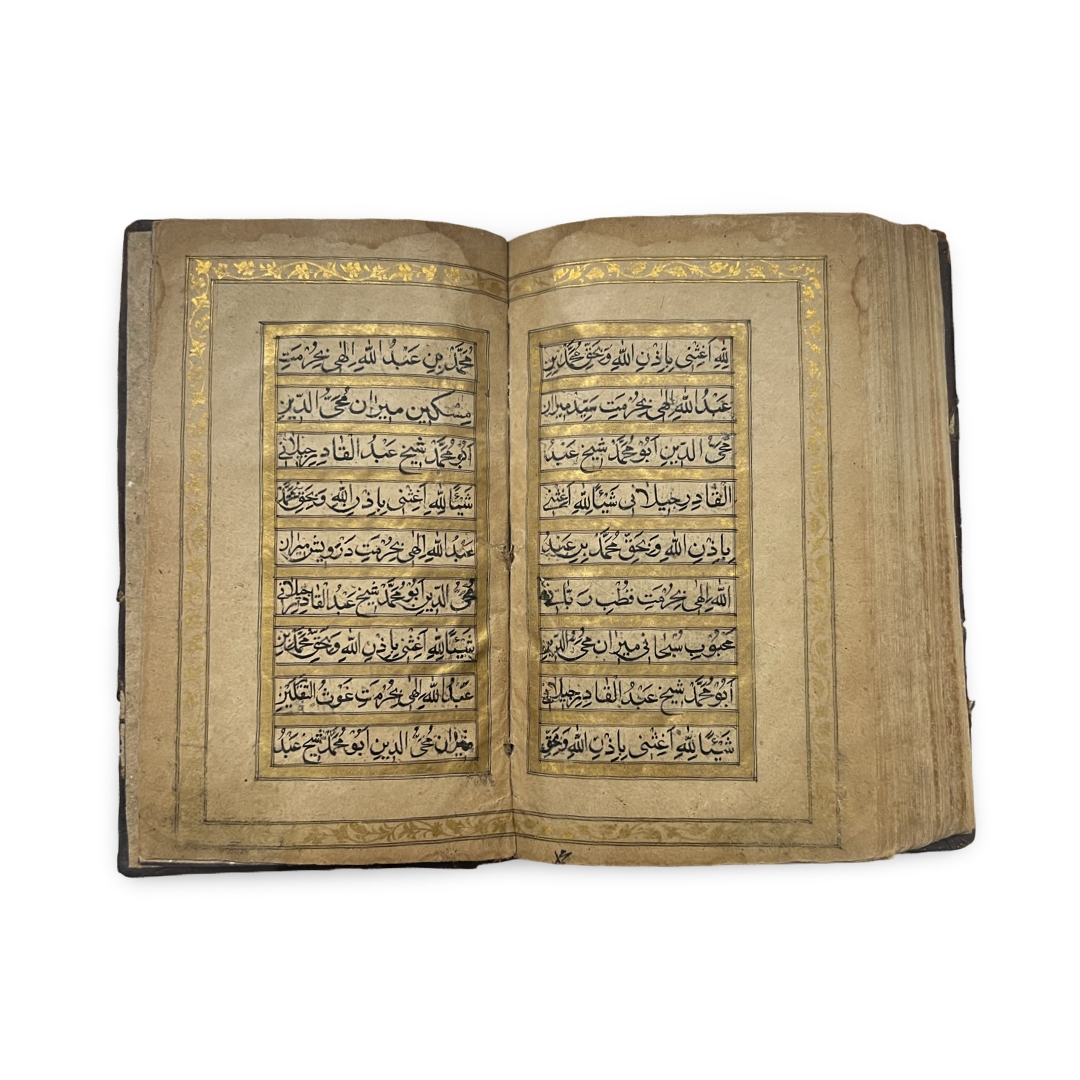 لِلّٰهِ اَغِثْنِی بِاِذْنِ اللّٰهِ وَ بِحَقِّ مُحَمَّدْ بِنْ
عَبْدُ اللّٰهِ اِلٰهِی بِحُرْمَتِ سَیِّدْ مِیْرَان
مُحْیُ الدِّیْنِ اَبُوْ مُحَمَّدْ شَیْخ عَبْدُ
الْقَادِرِ جِیْلَانِی شَیْئًا لِلّٰهِ اَغِثْنِی
بِاِذْنِ اللّٰهِ وَ بِحَقِّ مُحَمَّدْ بِنْ عَبْدُ
اللّٰهِ اِلٰهِی بِحُرْمَتِ قُطْبِ رَبَّانِی
مَحْبُوْبِ سُبْحَانِی مِیْرَان مُحْیُ الدِّیْنِ
اَبُوْ مُحَمَّدْ شَیْخ عَبْدُ الْقَادِرِ جِیْلَانِی
شَیْئًا لِلّٰهِ اَغِثْنِی بِاِذْنِ اللّٰهِ وَ بِحَقِّ
مُحَمَّدْ بِنْ عَبْدُ اللّٰهِ اِلٰهِی بِحُرْمَتِ
مِسْکِیْن مِیْرَان مُحْیُ الدِّیْنِ
اَبُوْ مُحَمَّدْ شَیْخ عَبْدُ الْقَادِرِ جِیْلَانِی
شَیْئًا لِلّٰهِ اَغِثْنِی بِاِذْنِ اللّٰهِ وَ بِحَقِّ مُحَمَّدْ
عَبْدُ اللّٰهِ اِلٰهِی بِحُرْمَتِ دَرْوِیْش مِیْرَان
مُحْیُ الدِّیْنِ اَبُوْ مُحَمَّدْ شَیْخ عَبْدُ الْقَادِرِ جِیْلَانِی
شَیْئًا لِلّٰهِ اَغِثْنِی بِاِذْنِ اللّٰهِ وَ بِحَقِّ مُحَمَّدْ بِنْ
عَبْدُ اللّٰهِ اِلٰهِی بِحُرْمَتِ غَوْثُ الثَّقَلَیْنِ
مِیْرَان مُحْیُ الدِّیْنِ اَبُوْ مُحَمَّدْ شَیْخ عَبْدُ